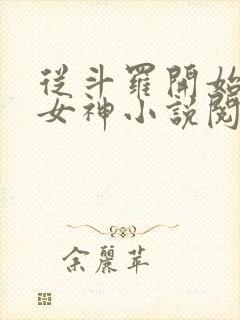 從斗羅開始
女神小說閱
余麗苹